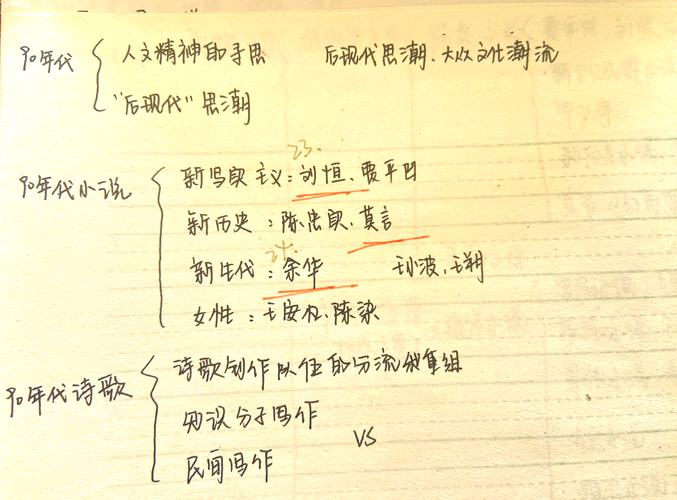 90年代 人文精神的寻思 后现代思潮、大众文化潮流
"后现代"思潮
23.
90年代小说 新写实主义：刘恒、贾平凹
新历史：陈忠实、莫言
24.
新生代：余华 王小波、王朔
女性：王安忆、陈染
90年代诗歌 诗歌创作队伍的分流和重组
知识分子写作
VS
民间写作